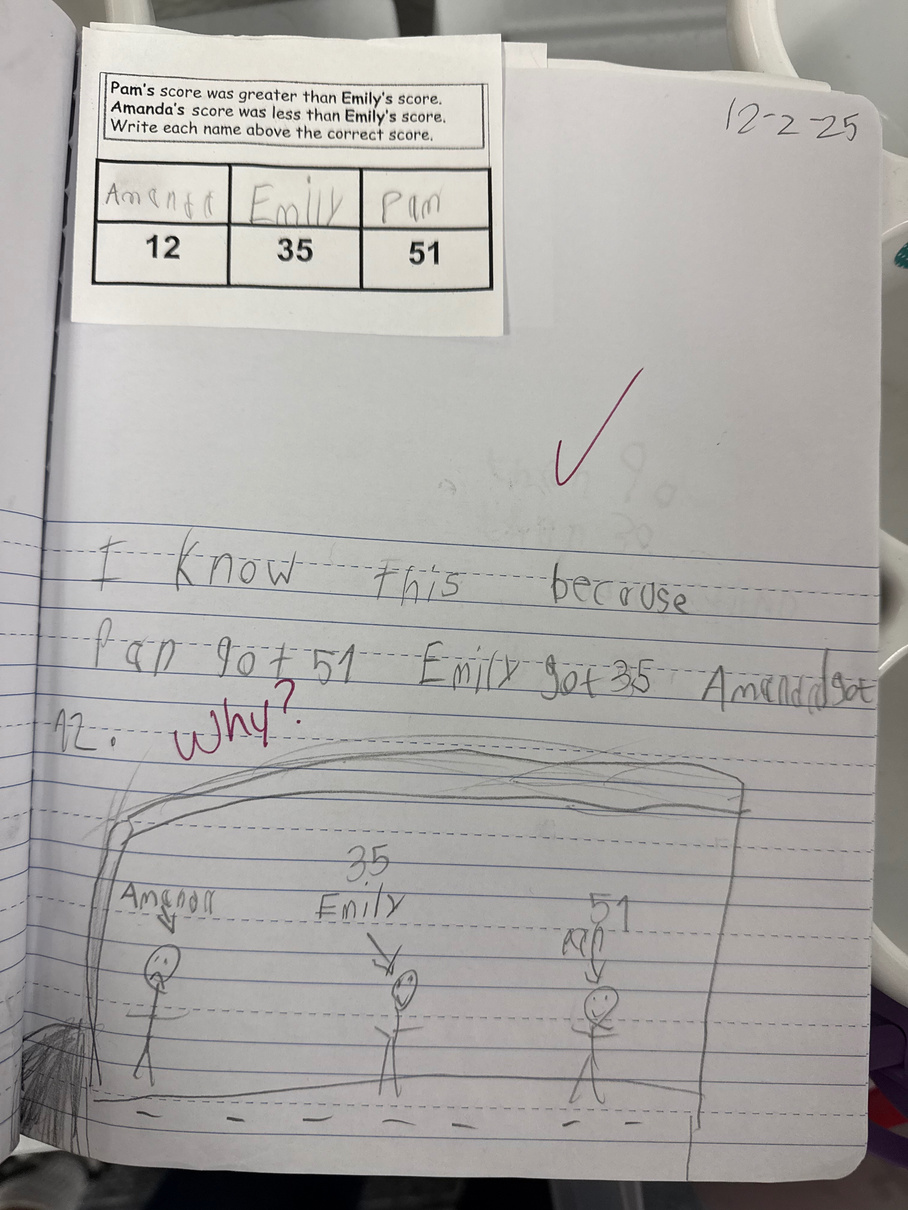 12-2-25
Pam's score was greater than Emily's score.
Amanda's score was less than Emily's score.
Write each name above the correct score.
Amanda Emily Pam
12 35 51
I know this because
Pan got 51 Emily got 35 Amanda got
12. Why?
35
51
Amanda Emily
Pan